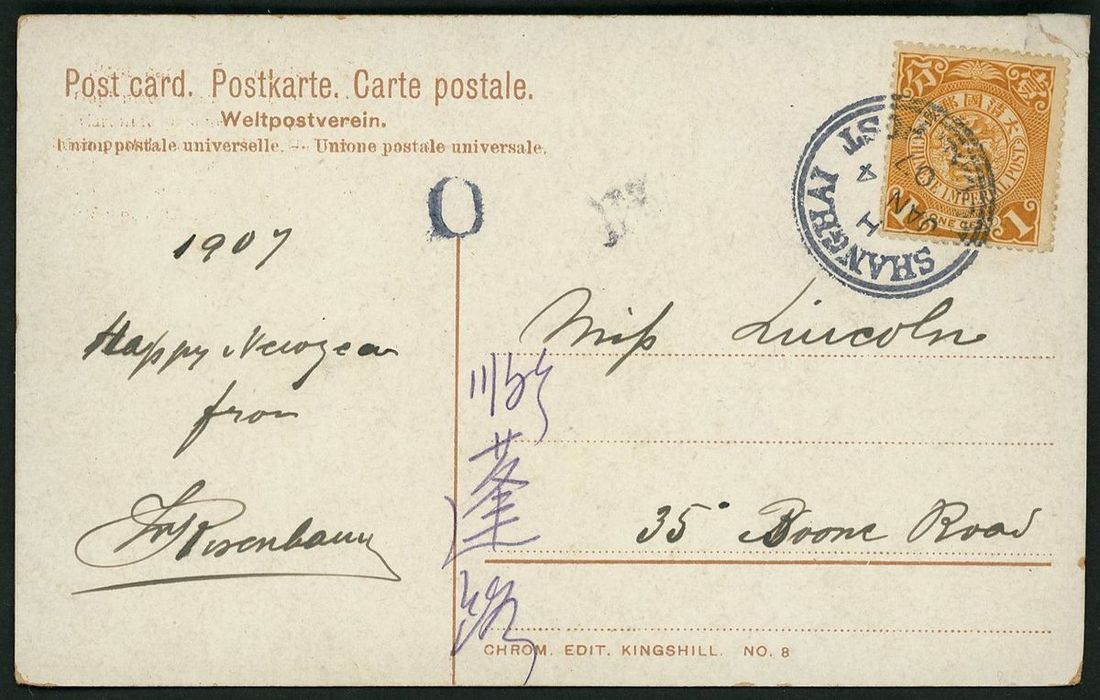 Post card. Postkarte. Carte postale.
Weltpostverein.
Union postale universelle. — Unione postale universale.
O
1907
Happy Newyear
from
Rosenbaum
SHANGHAI
1
JAN
07
大清國郵政
壹
CHINESE IMPERIAL POST
1 ONE CENT 1
Miss Lincoln
35 Boone Road
蓬
路
CHROM. EDIT. KINGSHILL. NO. 8